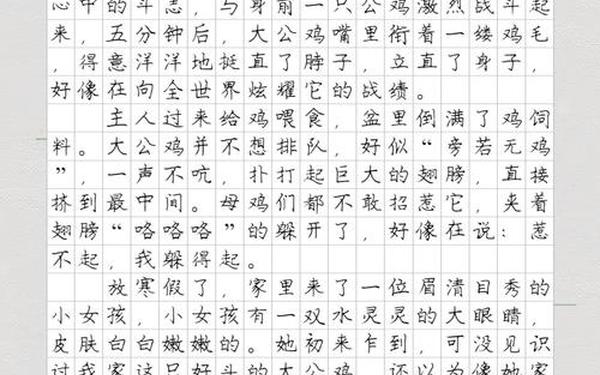 心中的斗志，与身前一只公鸡激烈战斗起
来，五分钟后，大公鸡嘴里衔着一缕鸡毛
，得意洋洋地挺直了脖子，立直了身子，
好像在向全世界炫耀它的战绩。
主人过来给鸡喂食，盆里倒满了鸡饲
料。大公鸡并不想排队，好似“旁若无鸡
”，一声不吭，扑打起巨大的翅膀，直接
挤到最中间。母鸡们都不敢招惹它，夹着
翅膀“咯咯咯”的躲开了，好像在说：惹
不起，我躲得起。
放寒假了，家里来了一位眉清目秀的
小女孩，小女孩有一双水灵灵的大眼睛，
皮肤白白嫩嫩的。她初来乍到，可没见识
过我家这只好斗的大公鸡，还以为像她家